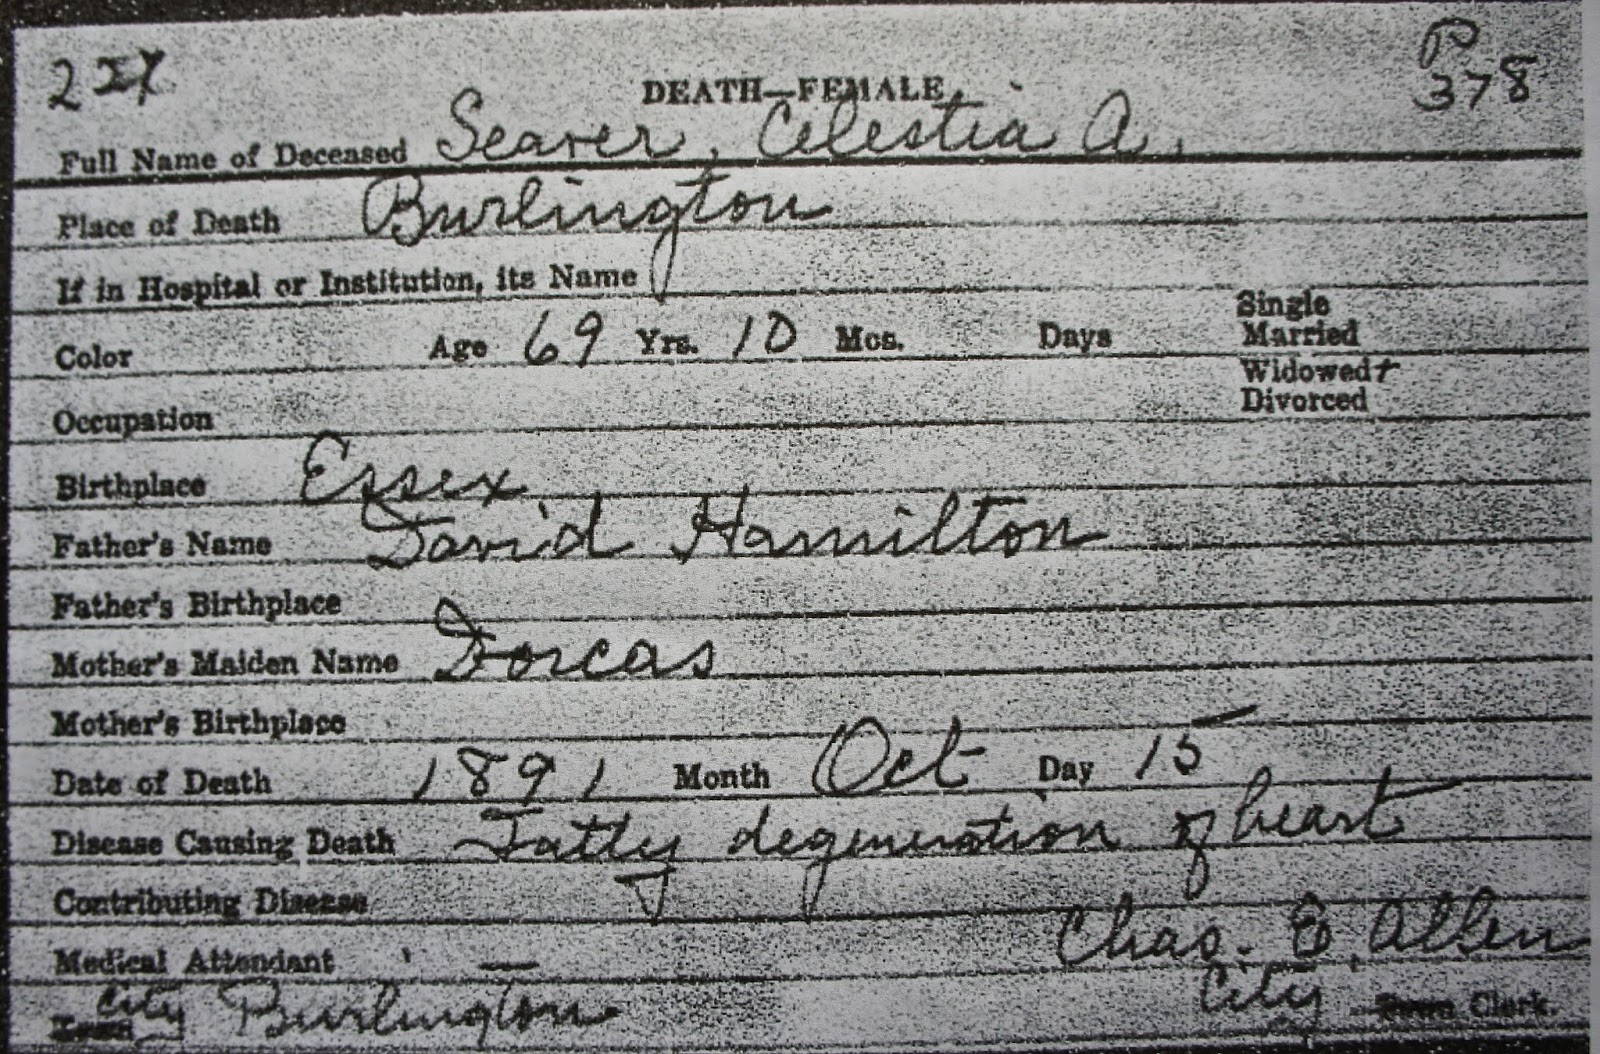 227 P
DEATH—FEMALE 378
Full Name of Deceased Seaver, Celestia A.
Place of Death Burlington
If in Hospital or Institution, its Name
Single
Color Age 69 Yrs. 10 Mos. Days Married
Widowed +
Divorced
Occupation
Birthplace Essex
Father's Name David Hamilton
Father's Birthplace
Mother's Maiden Name Dorcas
Mother's Birthplace
Date of Death 1891 Month Oct Day 15
Disease Causing Death Fatty degeneration of heart
Contributing Disease
Medical Attendant — Chas. E. Allen
City Burlington City Clerk.